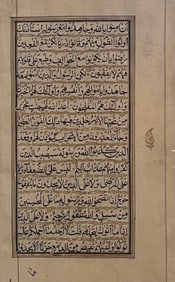 ان امنوا بالله وجاهدوا مع رسوله استاذنك
اولوا الطول منهم وقالوا ذرنا نكن مع القعدين
رضوا بان يكونوا مع الخوالف وطبع على قلوبهم
فهم لا يفقهون لكن الرسول والذين امنوا معه
جاهدوا باموالهم وانفسهم واولئك لهم الخيرات
واولئك هم المفلحون اعد الله لهم جنات تجري
من تحتها الانهار خالدين فيها ذلك الفوز العظيم
وجاء المعذرون من الاعراب ليؤذن لهم وقعد
الذين كذبوا الله ورسوله سيصيب الذين
كفروا منهم عذاب اليم ليس على الضعفاء ولا
على المرضى ولا على الذين لا يجدون ما ينفقون
حرج اذا نصحوا لله ورسوله ما على المحسنين
من سبيل والله غفور رحيم ولا على الذين
اذا ما اتوك لتحملهم قلت لا اجد ما احملكم عليه
تولوا واعينهم تفيض من الدمع حزنا الا يجدوا